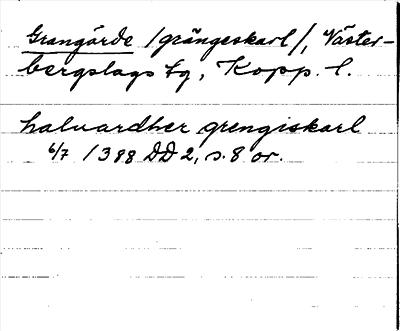 Grangärde /grängeskarl/, Väster-
bergslags tg, Kopp. l.
haluardher grengiskarl
6/7 1388 DD 2, s. 8 or.